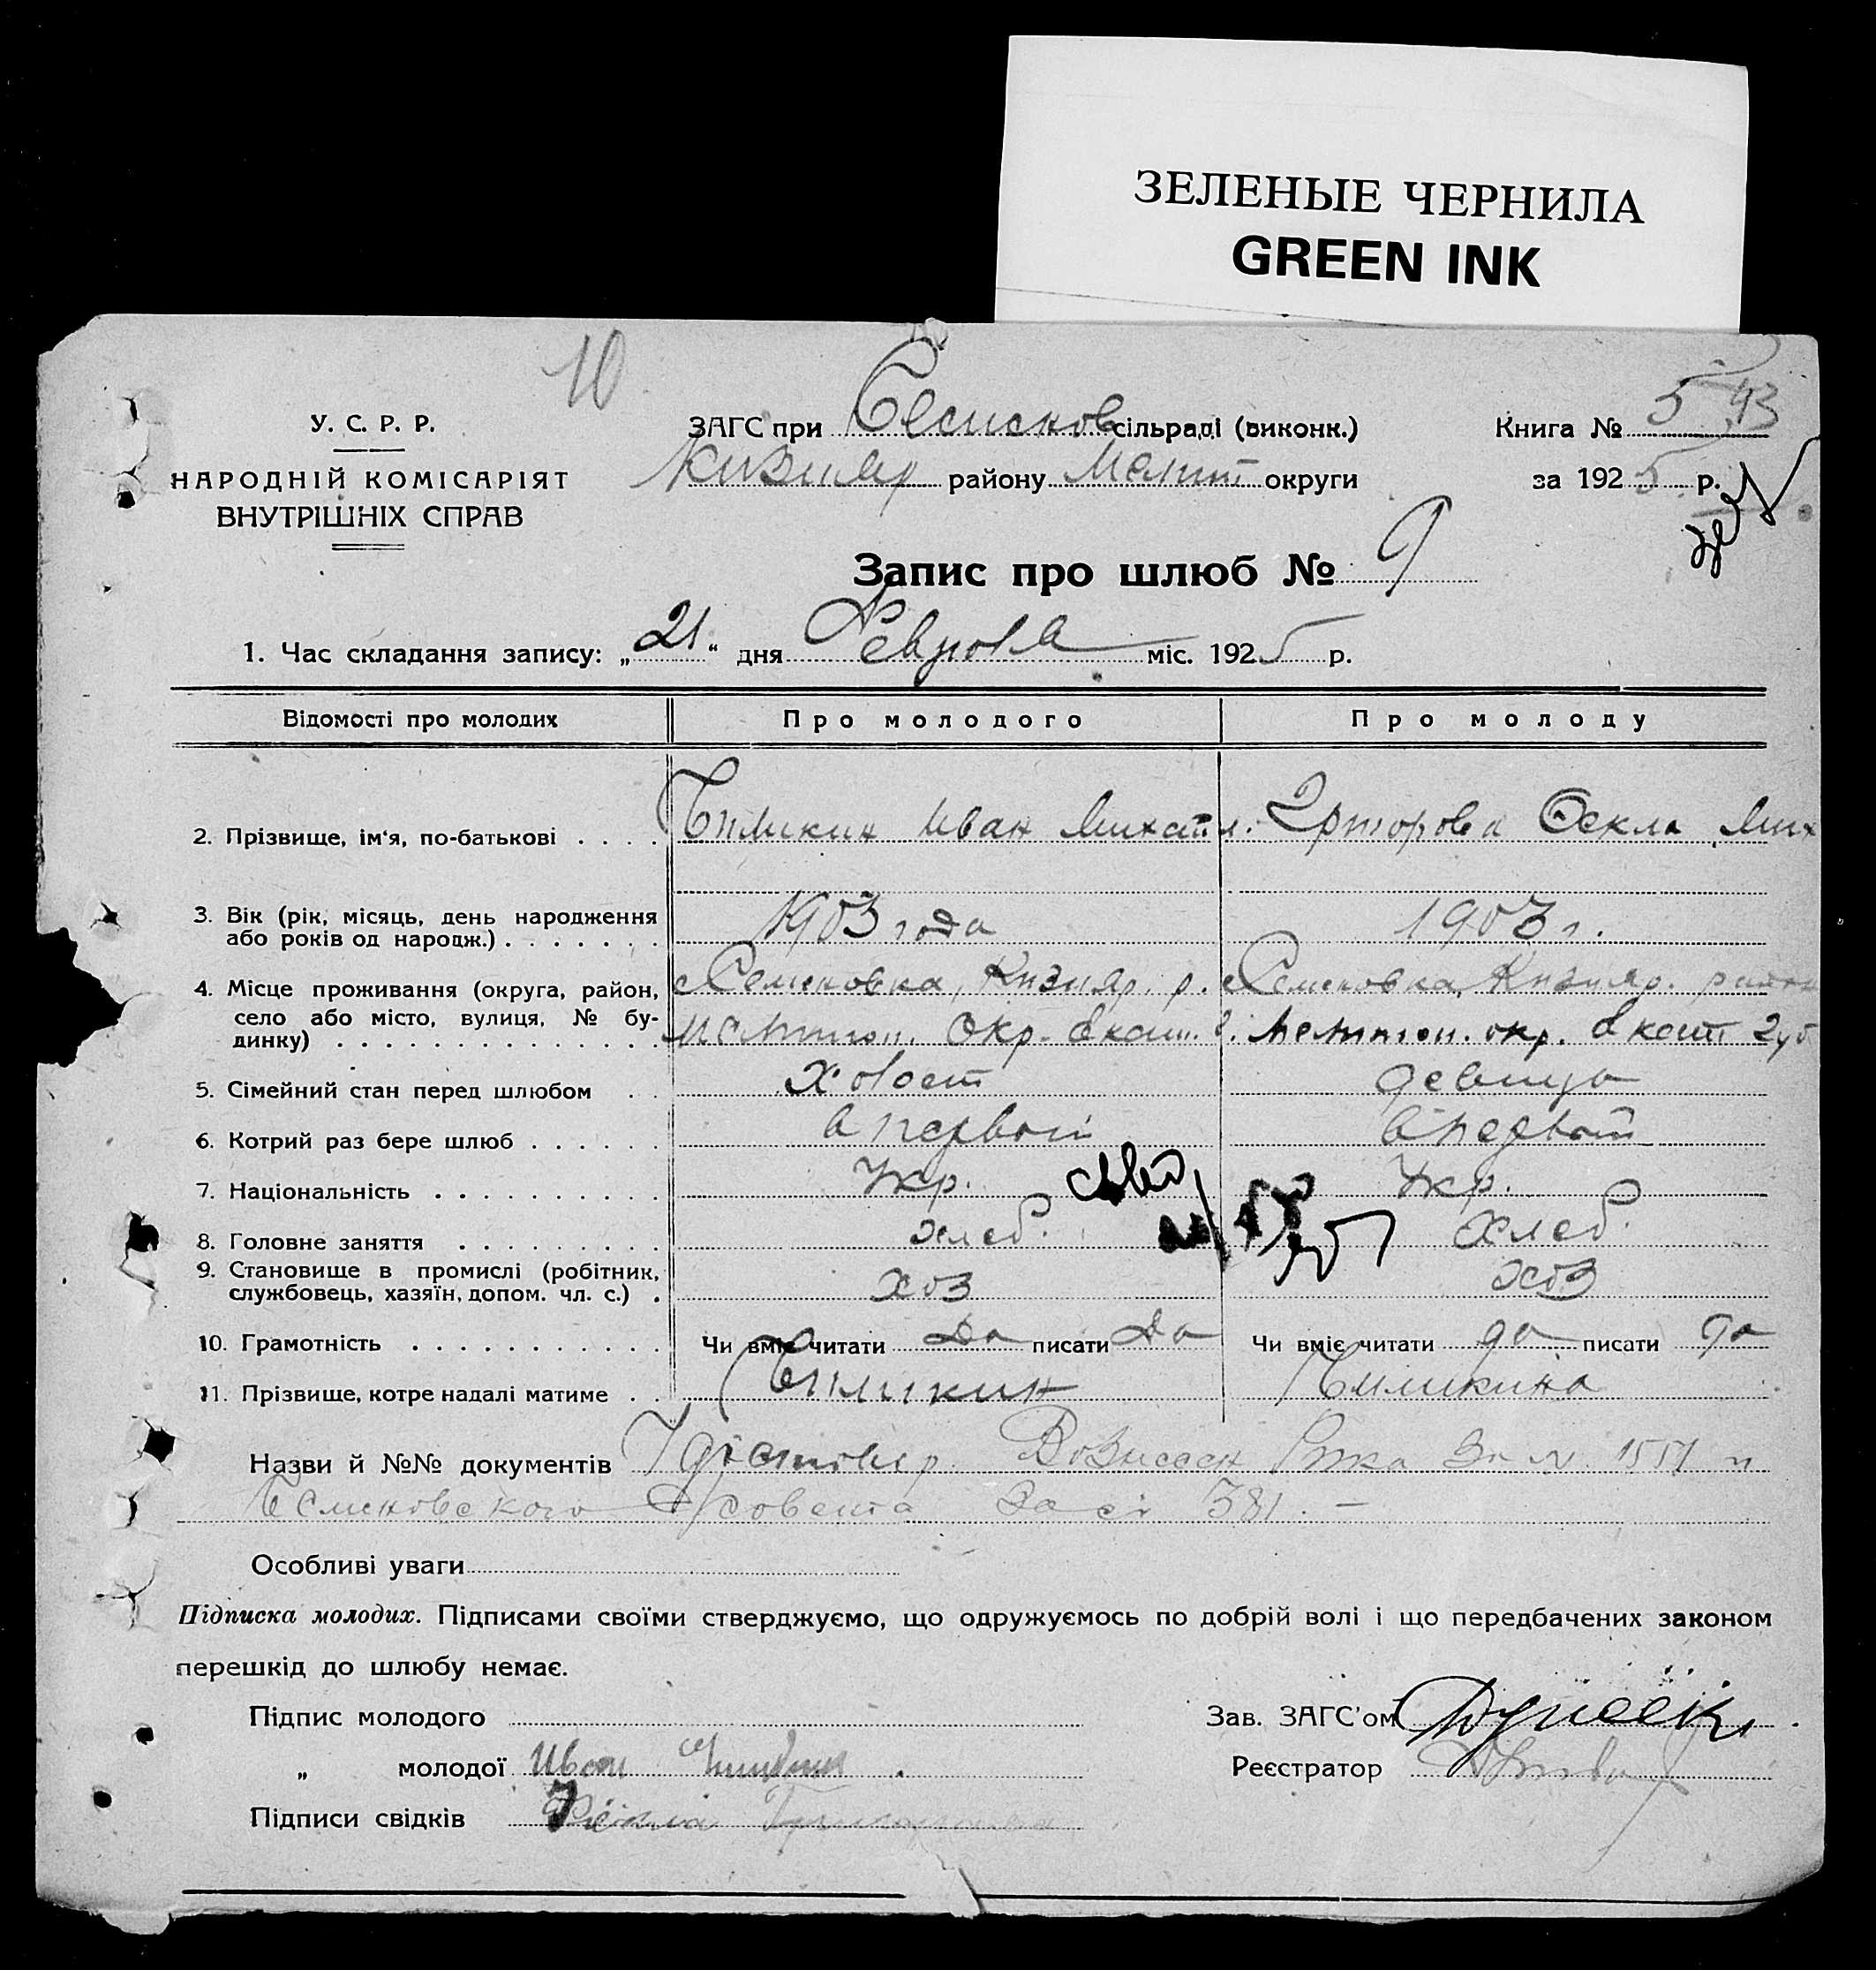 ЗЕЛЕНЫЕ ЧЕРНИЛА
GREEN INK
10
5 43
У. С. Р. Р.
ЗАГС при сільраді (виконк.) Книга №
НАРОДНІЙ КОМІСАРІЯТ
ВНУТРІШНІХ СПРАВ
Кизияр району Мелит округи за 1925 р.
Запис про шлюб № 9
1. Час складання запису: „21“ дня Февраля міс. 1925 р.
Відомості про молодих Про молодого Про молоду
2. Прізвище, ім'я, по-батькові . . . . Иван Михайл. Фекла Мих
3. Вік (рік, місяць, день народження 1903 года 1903 г.
або років од народж.) . . . . . . .
4. Місце проживання (округа, район, с Семеновка, Кизияр. р. с Семеновка, Кизияр. район
село або місто, вулиця, № бу-
динку) . . . . . . . . . . . . . Мелитоп. Окр. Екат. г. Мелитоп. окр. Екат Губ
5. Сімейний стан перед шлюбом . . Холост девица
6. Котрий раз бере шлюб . . . . . . в первый в первый
7. Національність . . . . . . . . . . Укр. Укр.
8. Головне заняття . . . . . . . . . хлеб. Хлеб.
9. Становище в промислі (робітник,
службовець, хазяїн, допом. чл. с.) . хоз хоз
10. Грамотність . . . . . . . . . . . Чи вміє читати да писати да Чи вміє читати да писати да
11. Прізвище, котре надалі матиме . .
Назви й №№ документів Удостовер. Вознесен Рика За № 1551 и
Семеновского С/совета За № 381. —
Особливі уваги
Підписка молодих. Підписами своїми стверджуємо, що одружуємось по добрій волі і що передбачених законом
перешкід до шлюбу немає.
Підпис молодого Зав. ЗАГС'ом
„ молодої Иван Реєстратор
Підписи свідків Фекла